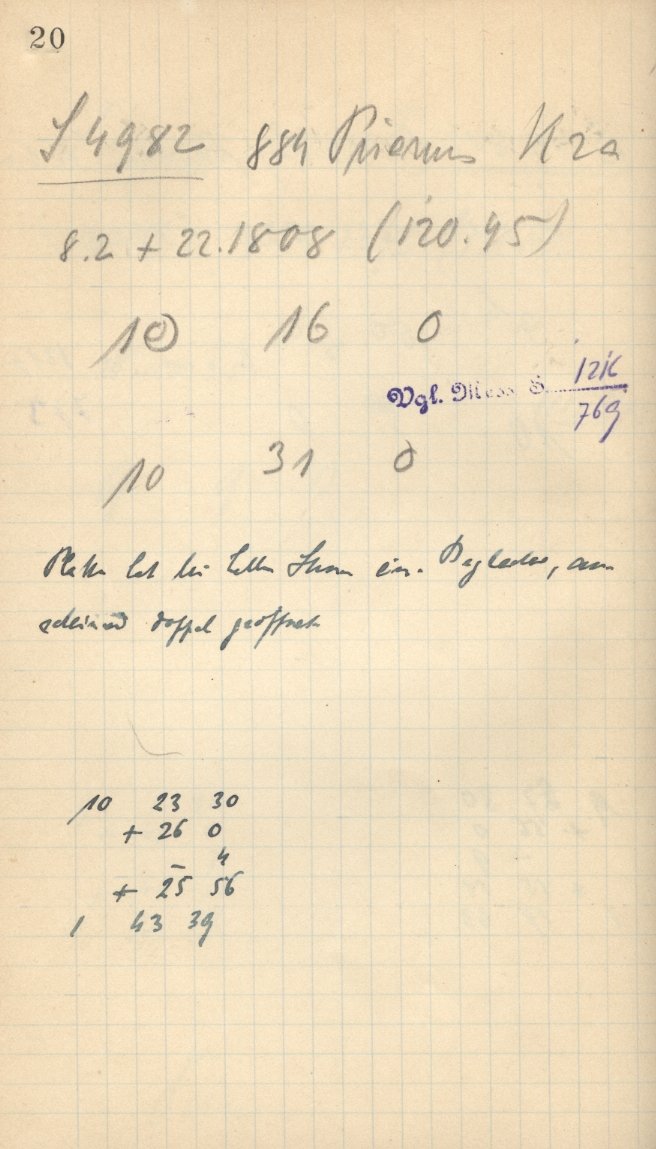 20
J 4982 884 Priamus Kra
8.2 + 22.1808 (120.45)
10 16 0
Vgl. Mess. S. 12K
769
10 31 0
Platte hat bei hellem Stern ein. an
scheinend doppel geöffnet
10 23 30
+ 26 0
– 4
+ 25 56
1 43 39